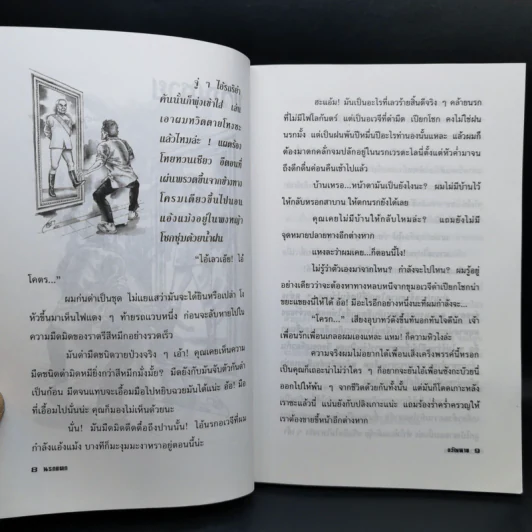 จู่ ๆ ไอ้รถริยำ
คันนั้นก็พุ่งเข้าใส่ เล่น
เอาผมหวิดตายโหงซะ
แล้วไหมล่ะ ! ผมตร้อง
โหยหวนเชียว ดีตอนที่
เผ่นพรวดขึ้นจากข้างทาง
โครมเดียวขึ้นไปนอน
แอ้งแม่งอยู่ในพงหญ้า
โชกชุ่มด้วยน้ำฝน
"ไอ้เลวเอ๊ย! ไอ้
โคตร..."
ผมก่นด่าเป็นชุด ไม่แยแสว่ามันจะได้ยินหรือเปล่า โง
หัวขึ้นมาเห็นไฟแดง ๆ ท้ายรถแวบหนึ่ง ก่อนจะลับหายไปใน
ความมืดมิดของราตรีสีหมึกอย่างรวดเร็ว
มันดำมืดชนิดวายป่วงจริง ๆ เอ้า! คุณเคยเห็นความ
มืดชนิดดำมิดหมียิ่งกว่าสีหมึกมั่งมั้ย? มืดยังกับมันจับตัวกัน
เป็นก้อน มืดจนแทบจะเอื้อมมือไปหยิบฉวยมันได้น่ะ อ้อ! มือ
ที่เอื้อมไปนั่นน่ะ คุณก็มองไม่เห็นด้วยนะ
นั่น! มันมืดมิดตึดตื๋อถึงปานนั้น! ไอ้นรกอเวจีที่ผม
กำลังแอ้งแม้ง บางทีก็มะงุมมะงาหราอยู่ตอนนี้น่ะ
8 นรกแตก
ฮะแอ้ม! มันเป็นอะไรที่เลวร้ายสิ้นดีจริง ๆ คล้ายนรก
ที่ไม่มีไฟโลกันตร์ แต่เป็นอเวจีที่ดำมืด เปียกโชก คงไม่ใช่ฝน
นรกมั้ง แต่เป็นฝนพันปีหมื่นปีอะไรทำนองนั้นแหละ แล้วผมก็
ต้องมาตกคลั่กจมปลักอยู่ในนรกเวรตะไลนี่ตั้งแต่หัวค่ำมาจน
ถึงดึกดื่นค่อนคืนเข้าไปแล้ว
บ้านเหรอ...หน้าตามันเป็นยังไงนะ? ผมไม่มีบ้านไว้
ให้กลับหรอกสาบาน ให้ตกนรกยังได้เลย
คุณเคยไม่มีบ้านให้กลับไหมล่ะ? แถมยังไม่มี
จุดหมายปลายทางอีกต่างหาก
แหงละว่าผมเคย...ก็ตอนนี้ไง!
ไม่รู้ว่าตัวเองมาจากไหน? กำลังจะไปไหน? ผมรู้อยู่
อย่างเดียวว่าจะต้องหาทางหลบหนีจากขุมอเวจีดำเปียกโชกน่า
ขยะแขยงนี้ให้ได้ อ้อ! มีอะไรอีกอย่างหนึ่งนะที่ผมกำลังจะ...
"โครก..." เสียงอุบาทว์ดังขึ้นทันอกทันใจดีนัก เจ้า
เพื่อนรักเพื่อนเกลอผมเองแหละ แหม! ก็ความหิวไงล่ะ
ความจริงผมไม่อยากได้เพื่อนเส็งเคร็งพรรค์นี้หรอก
เป็นคุณก็เถอะน่าไม่ว่าใคร ๆ ก็อยากจะยันไอ้เพื่อนซังกะบ๊วยนี่
ออกไปให้พ้น ๆ จากชีวิตด้วยกันทั้งนั้น แต่มันก็โดดเกาะหลัง
เราซะแล้วนี่ แน่นยังกับปลิงเกาะน่ะ แถมร้องร่ำคร่ำครวญให้
เราต้องขายขี้หน้าอีกต่างหาก
ขวัญหาย 9